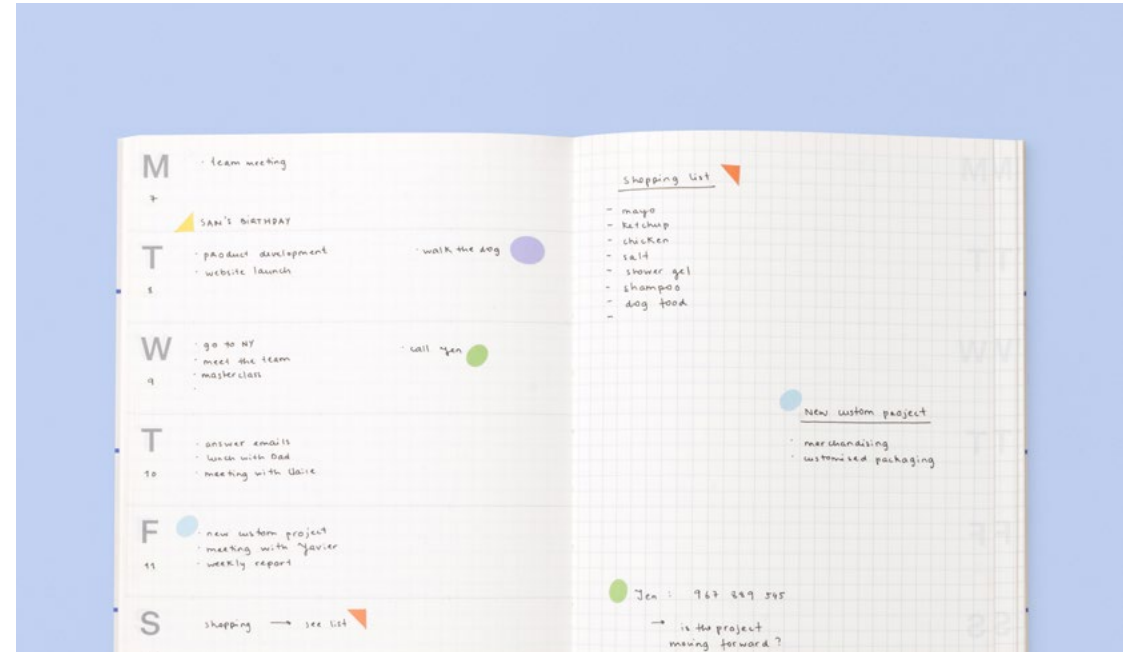 M
7
· team meeting
SAN'S BIRTHDAY
T
8
· product development
· website launch
· walk the dog
W
9
· go to NY
· meet the team
· masterclass
·
· call Yen
T
10
· answer emails
· lunch with Dad
· meeting with Claire
F
11
· new custom project
· meeting with Javier
· weekly report
S
shopping → see list
Shopping list
- mayo
- ketchup
- chicken
- salt
- shower gel
- shampoo
- dog food
-
New custom project
· merchandising
· customised packaging
Jen : 967 889 545
→ is the project
moving forward ?